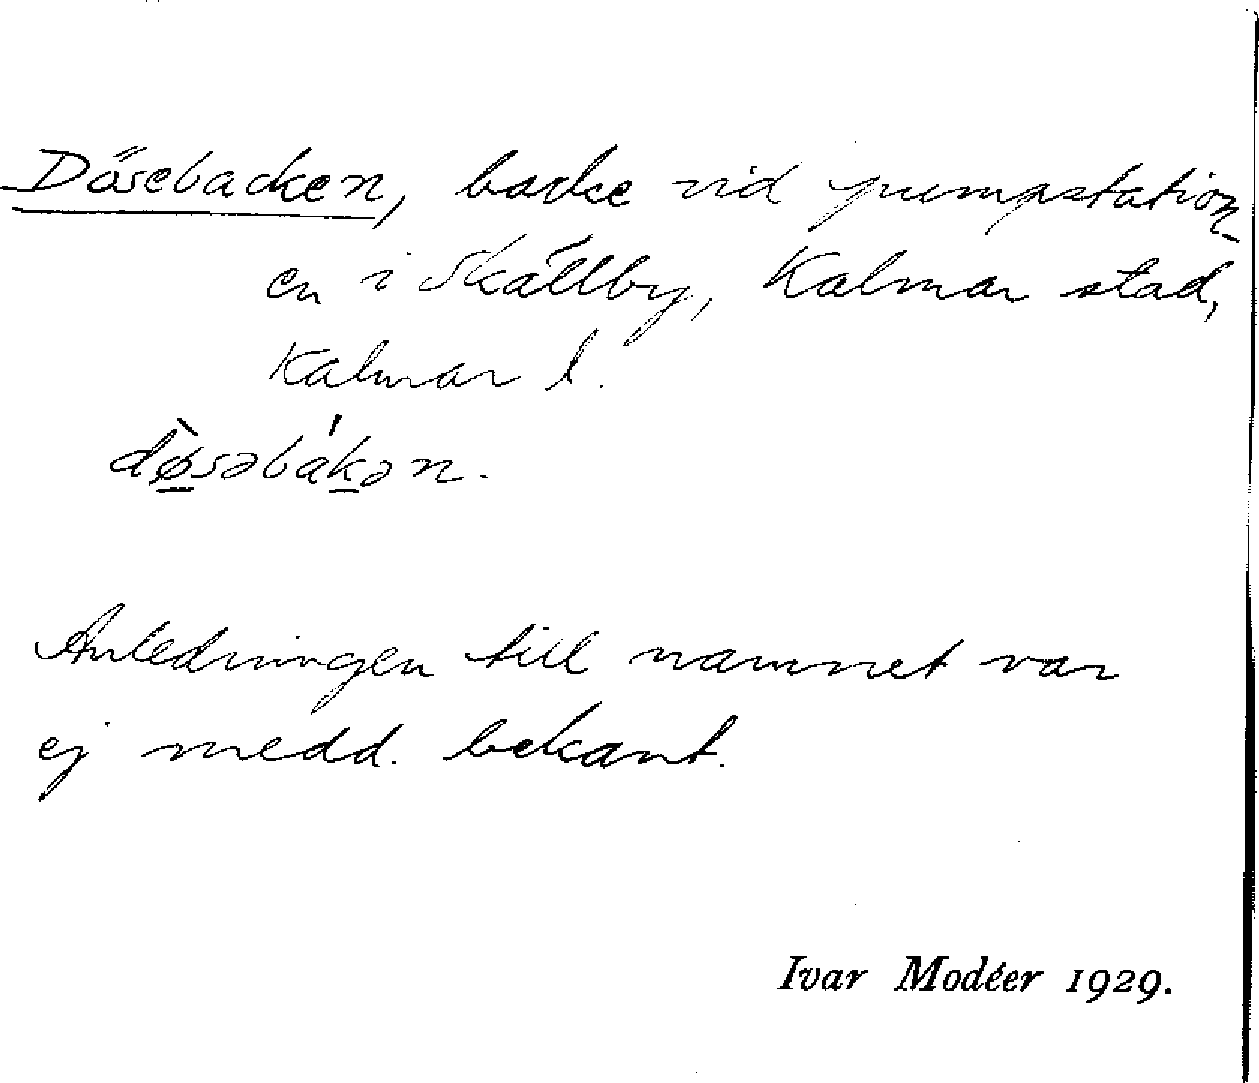 Dösebacken, backe vid pumpstation-
en i Skälby, Kalmar stad,
Kalmar l.
dø̀səbákən.
Anledningen till namnet var
ej medd. bekant.
Ivar Modéer 1929.